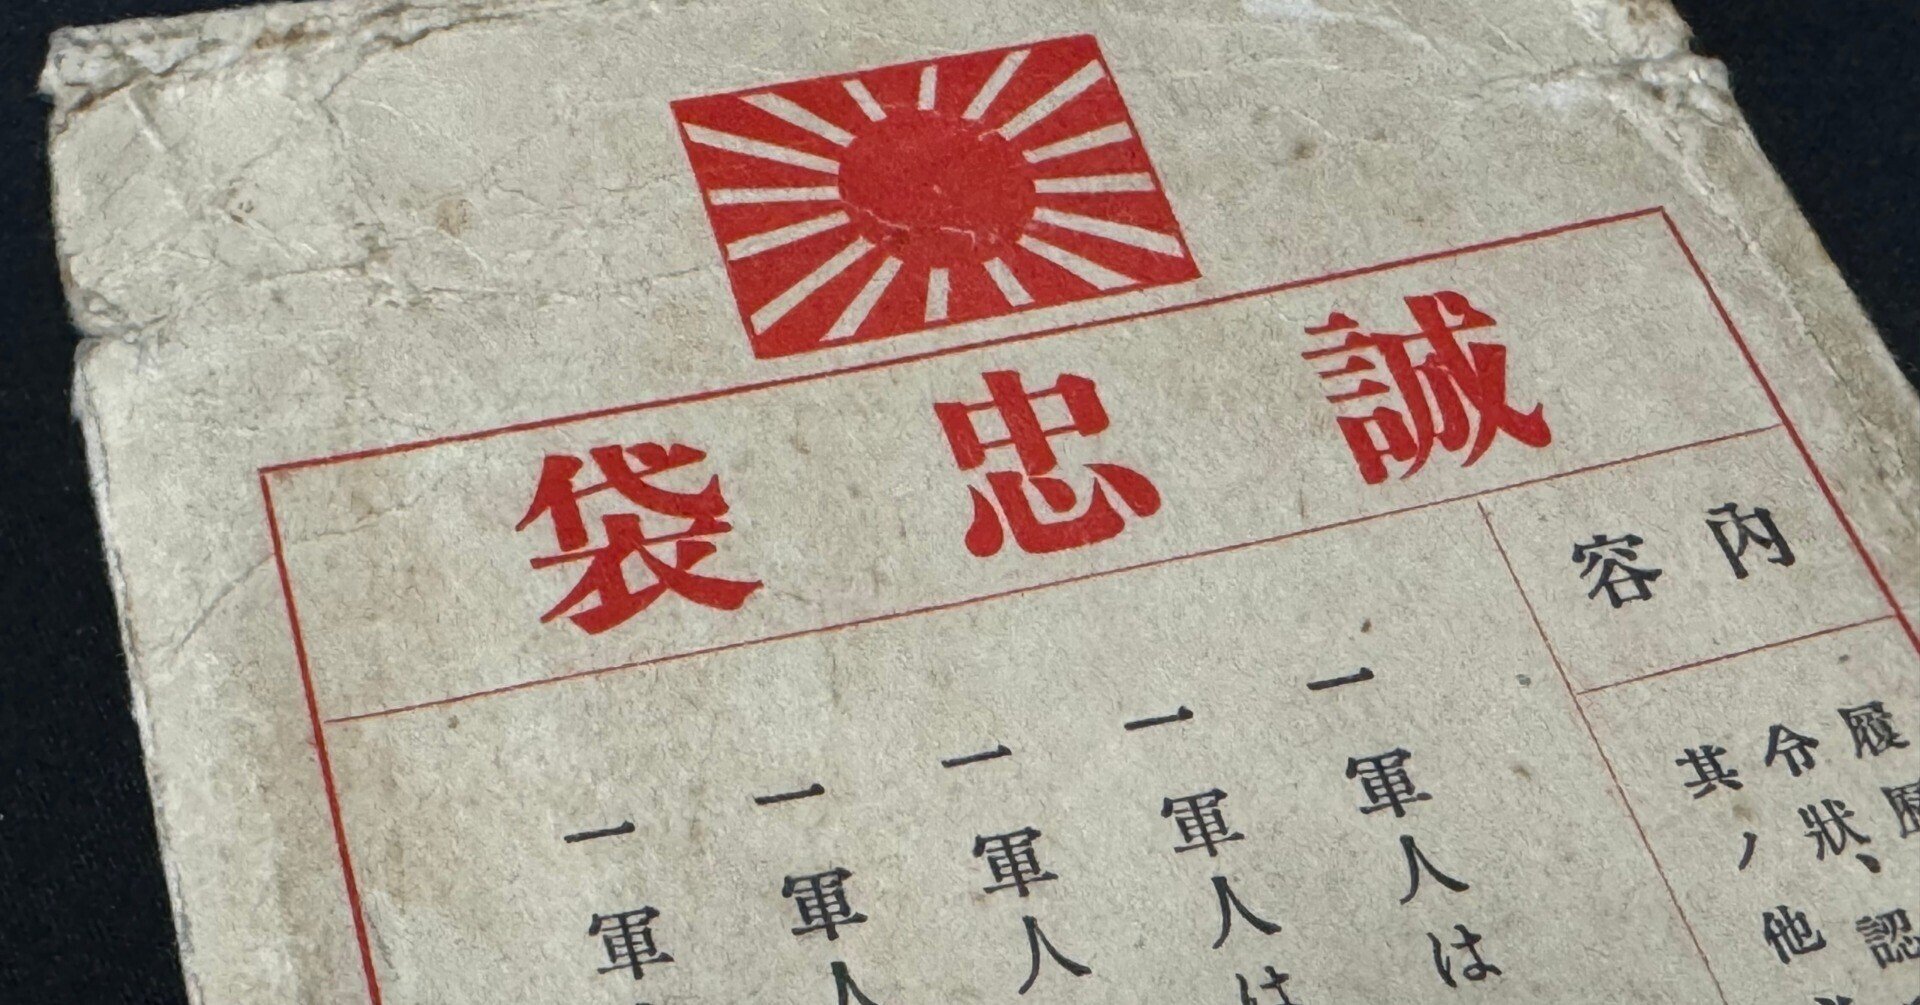 誠忠袋
內容
履歷
令狀、認
其ノ他
一軍人は
一軍人は
一軍人
一軍人
一軍